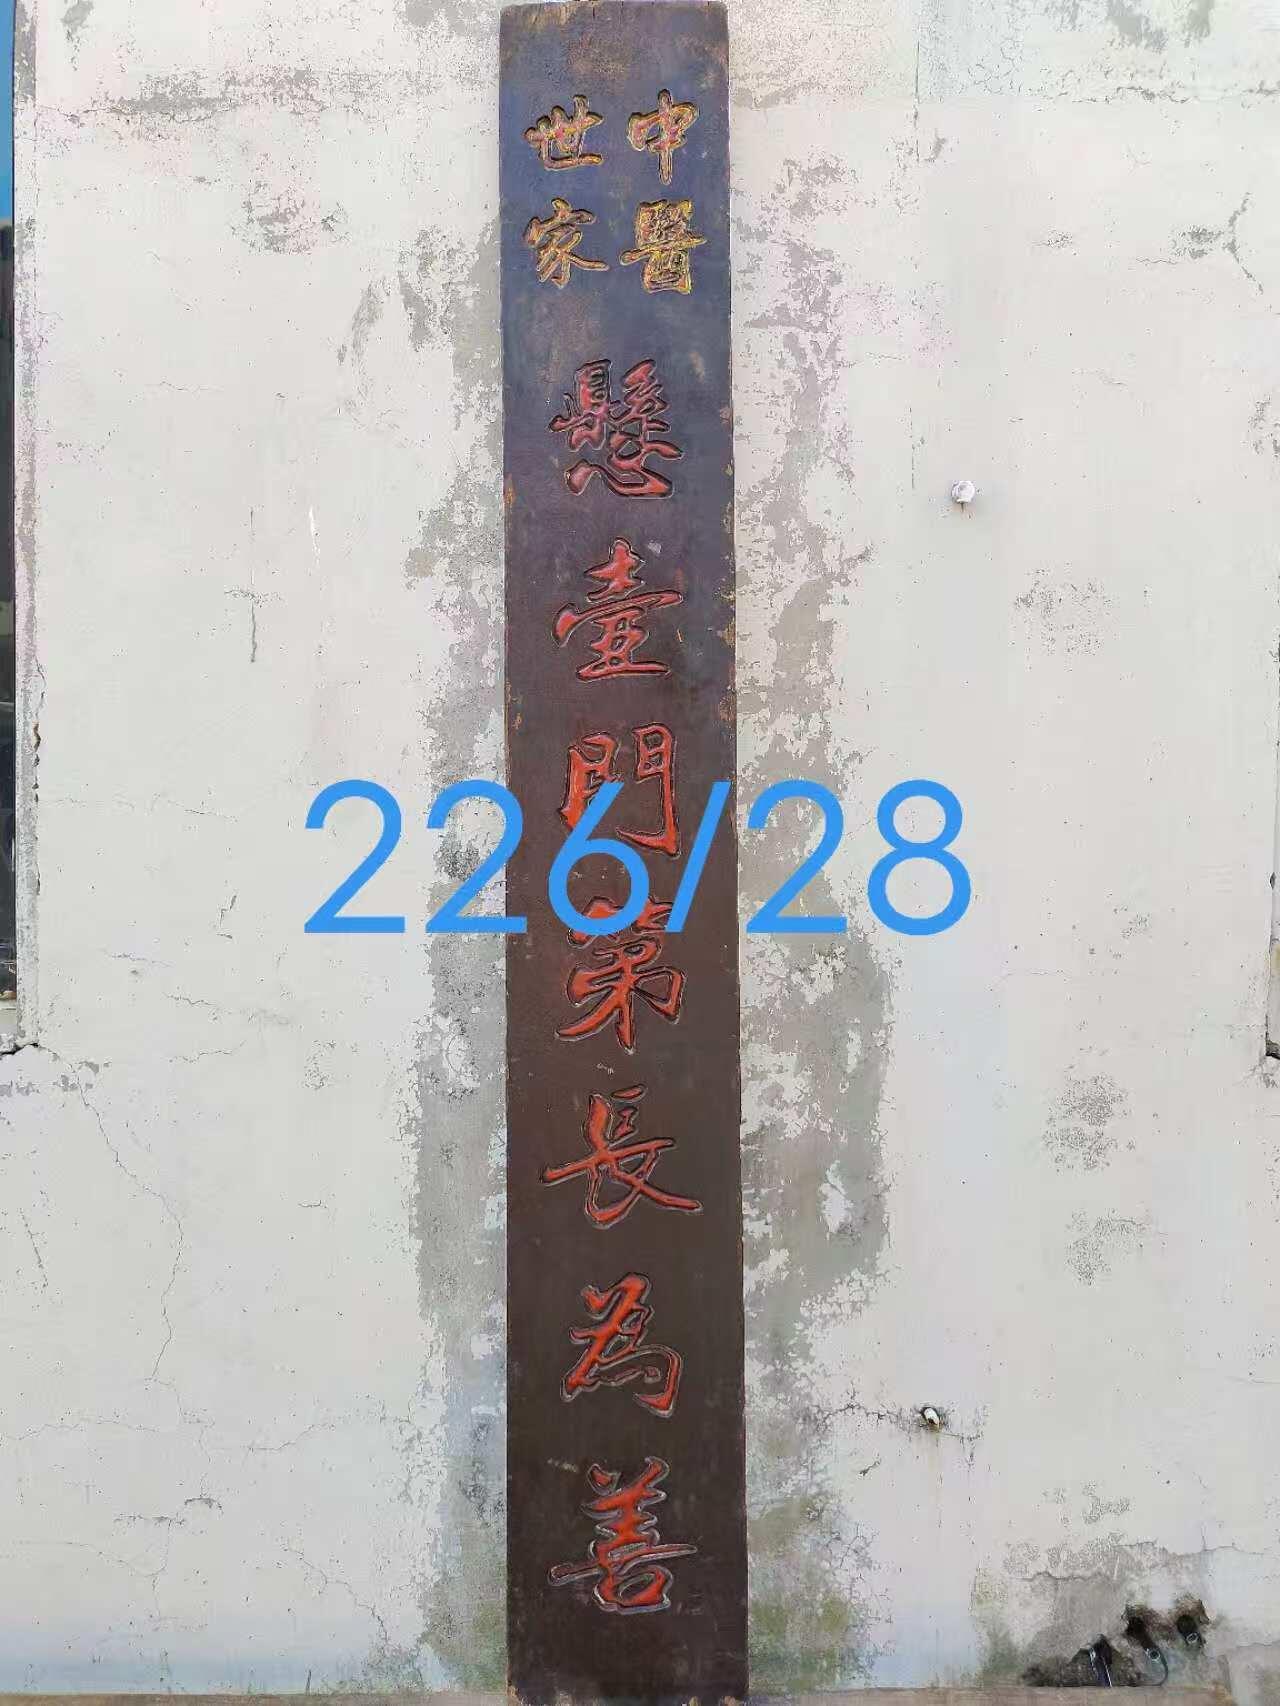 中醫
世家
懸壺門第長為善
226/28